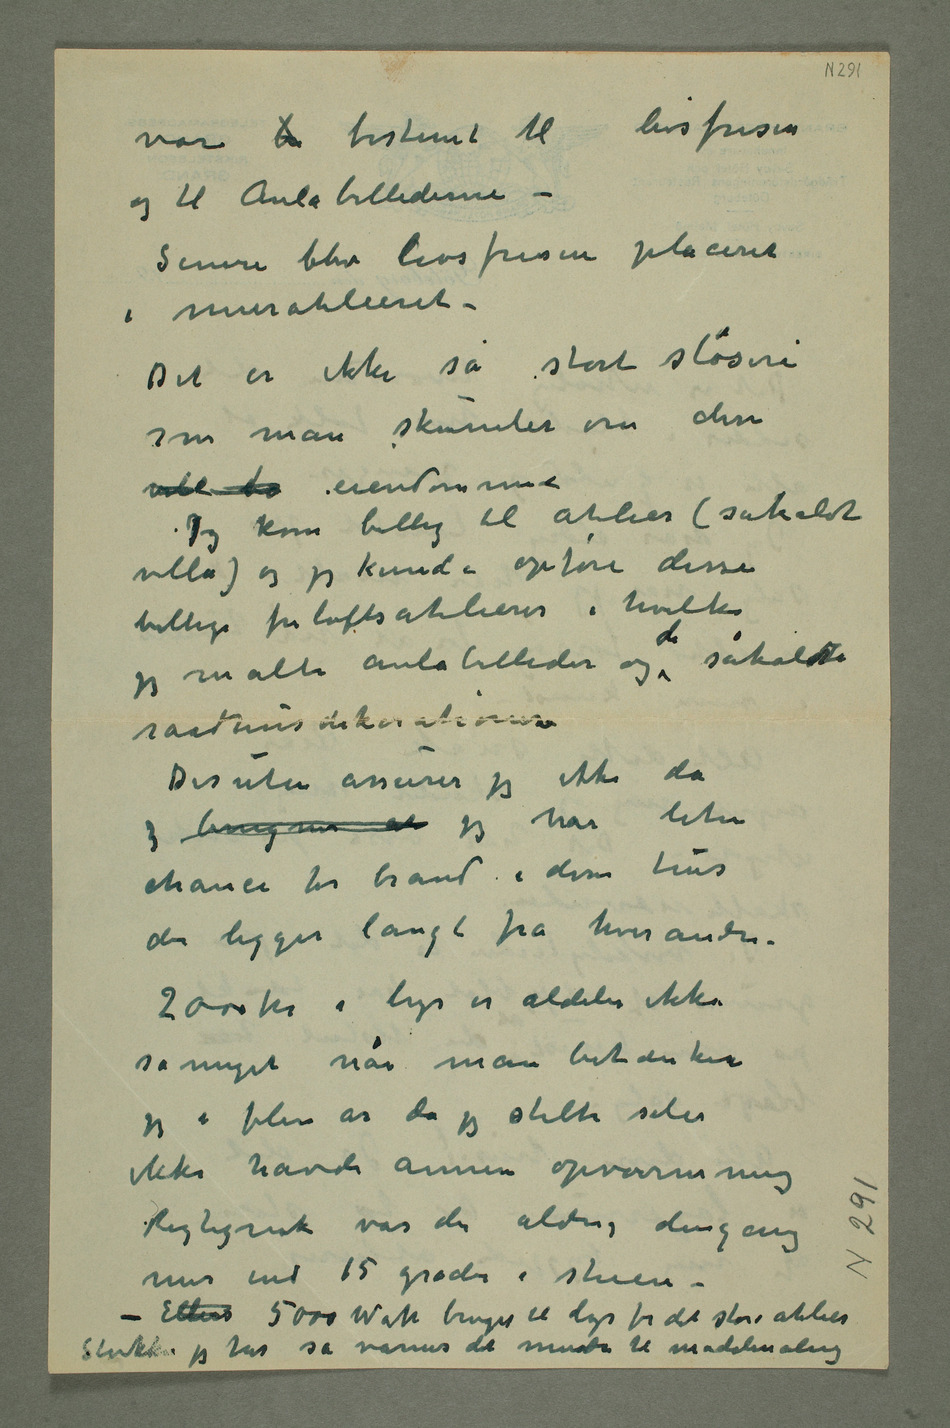 N 291
var bestemt til livsfrisen
og til Aulabillederne –
Senere blev livsfrisen placeret
i muratelieret –
Det er ikke så stort sløseri
som man skumler om disse
eiendomme
Jeg kom billig til atelier (såkaldt
villa) og jeg kunde opføre disse
billige friluftsatelierer i hvilke
jeg malte aulabilleder og de såkaldte
raadhusdekorationer
Desuten assurer jeg ikke da
jeg jeg har liten
chance for brand i disse hus
der ligger langt fra hverandre.
2000 kr i lys er aldeles ikke
så meget når man betænker
jeg i flere år da jeg stelte selv
ikke havde annen opvarmning
Rigtignok var der aldrig dengang
mer end 15 grader i stuen –
– Ellers 5000 Watt bruges til lys for det store atelier
Slukker jeg har så varmes det mindre til modelmaling
N 291